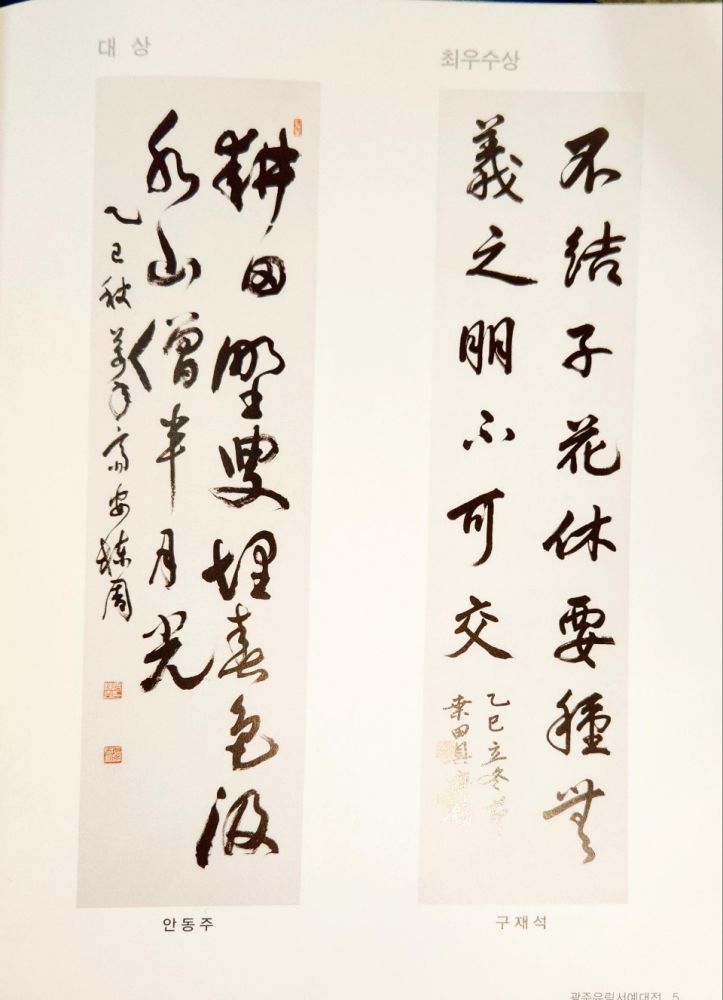 대 상
耕田野叟埋春色汲
水山僧半月光
乙巳秋 齋 安棟周
안동주
최우수상
不結子花休要種無
義之朋不可交
乙巳立冬節
桒田具
구재석
광주유림서예대전 5